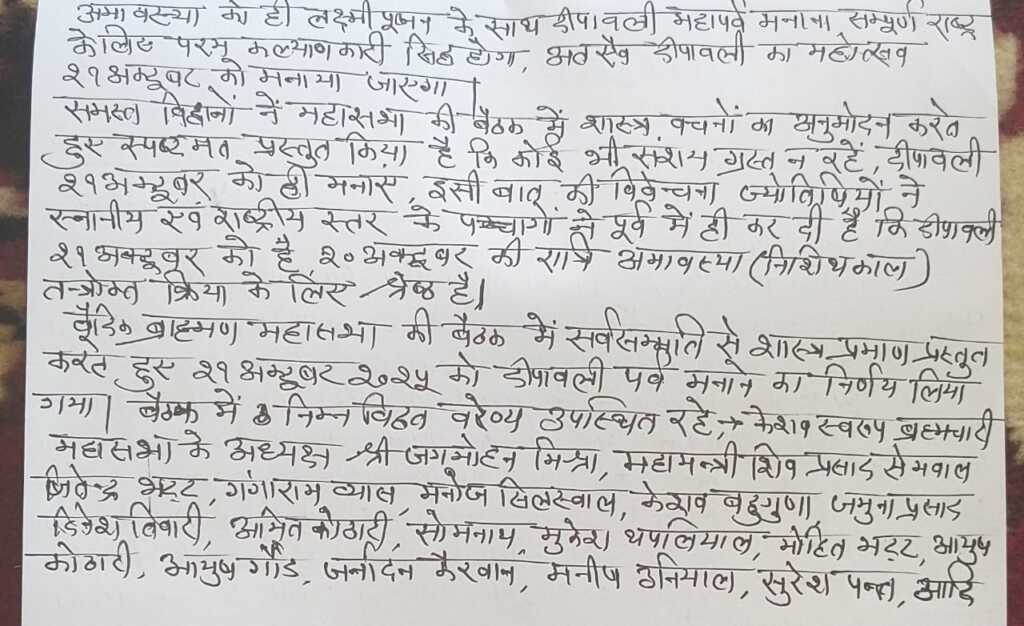 अमावस्या को ही लक्ष्मीपूजन के साथ दीपावली महापर्व मनाना सम्पूर्ण राष्ट्र
के लिए परम कल्याणकारी सिद्ध होगा, अतएव दीपावली का महोत्सव
२१ अक्टूबर को मनाया जाएगा |
समस्त विद्वानों नें महासभा की बैठक में शास्त्र वचनों का अनुमोदन करते
हुए स्पष्ट मत प्रस्तुत किया है कि कोई भी संशय ग्रस्त न रहें, दीपावली
२१ अक्टूबर को ही मनाए, इसी बात की विवेचना ज्योतिषियों ने
स्थानीय एवं राष्ट्रीय स्तर के पञ्चांगो ने पूर्व में ही कर दी है कि दीपावली
२१ अक्टूबर को है, २० अक्टूबर की रात्रि अमावस्या (निशिथकाल)
तन्त्रोक्त क्रिया के लिए श्रेष्ठ है|
वैदिक ब्राह्मण महासभा की बैठक में सर्वसम्मति से शास्त्र प्रमाण प्रस्तुत
करते हुए २१ अक्टूबर २०२५ को दीपावली पर्व मनाने का निर्णय लिया
गया| बैठक में निम्न विद्वत वरेण्य उपस्थित रहे,→ केशव स्वरुप ब्रह्मचारी
महासभा के अध्यक्ष श्री जगमोहन मिश्रा, महामन्त्री शिव प्रसाद सेमवाल
जितेन्द्र भट्ट, गंगाराम व्यास, मनोज सिलस्वाल, केशव बहुगुणा जमुना प्रसाद
दिनेश तिवारी, अमित कोठारी, सोमनाथ, मुकेश थपलियाल, मोहित भट्ट, आयुष
कोठारी, आयुष गौड, जनार्दन कैरवान, मनीष उनियाल, सुरेश पन्त, आदि